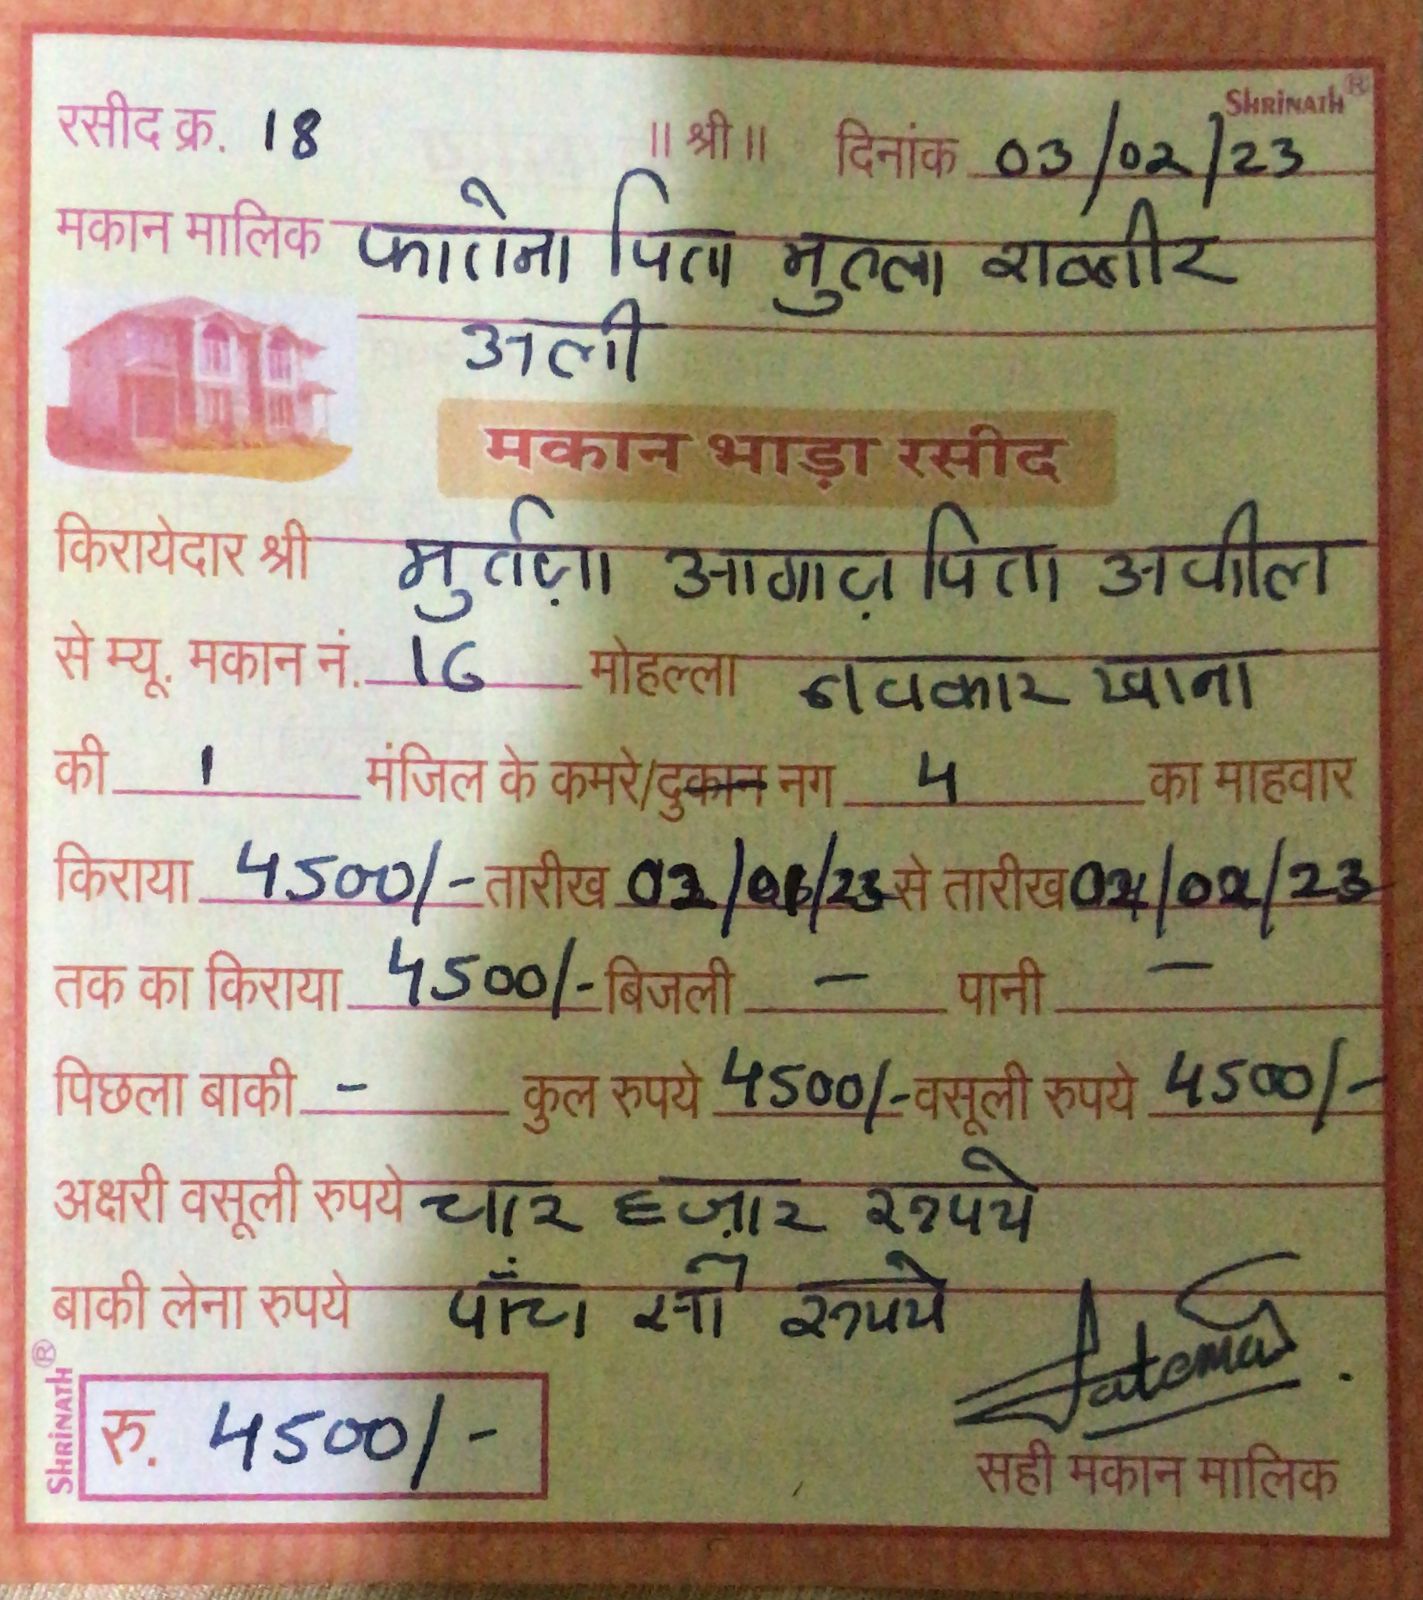 SHRINATH®
रसीद क्र. 18 ॥ श्री ॥ दिनांक 03/02/23
मकान मालिक फातेमा पिता मुल्ला शब्बीर
अली
मकान भाड़ा रसीद
किरायेदार श्री मुर्तज़ा आगाज़ पिता अकील
से म्यू. मकान नं. 16 मोहल्ला नवकार खाना
की 1 मंजिल के कमरे/दुकान नग 4 का माहवार
किराया 4500/- तारीख से तारीख
तक का किराया 4500/- बिजली - पानी -
पिछला बाकी - कुल रुपये 4500/- वसूली रुपये 4500/-
अक्षरी वसूली रुपये चार हज़ार रुपये
बाकी लेना रुपये पाँच सौ रुपये
Fatema
SHRINATH®
रु. 4500/-
सही मकान मालिक